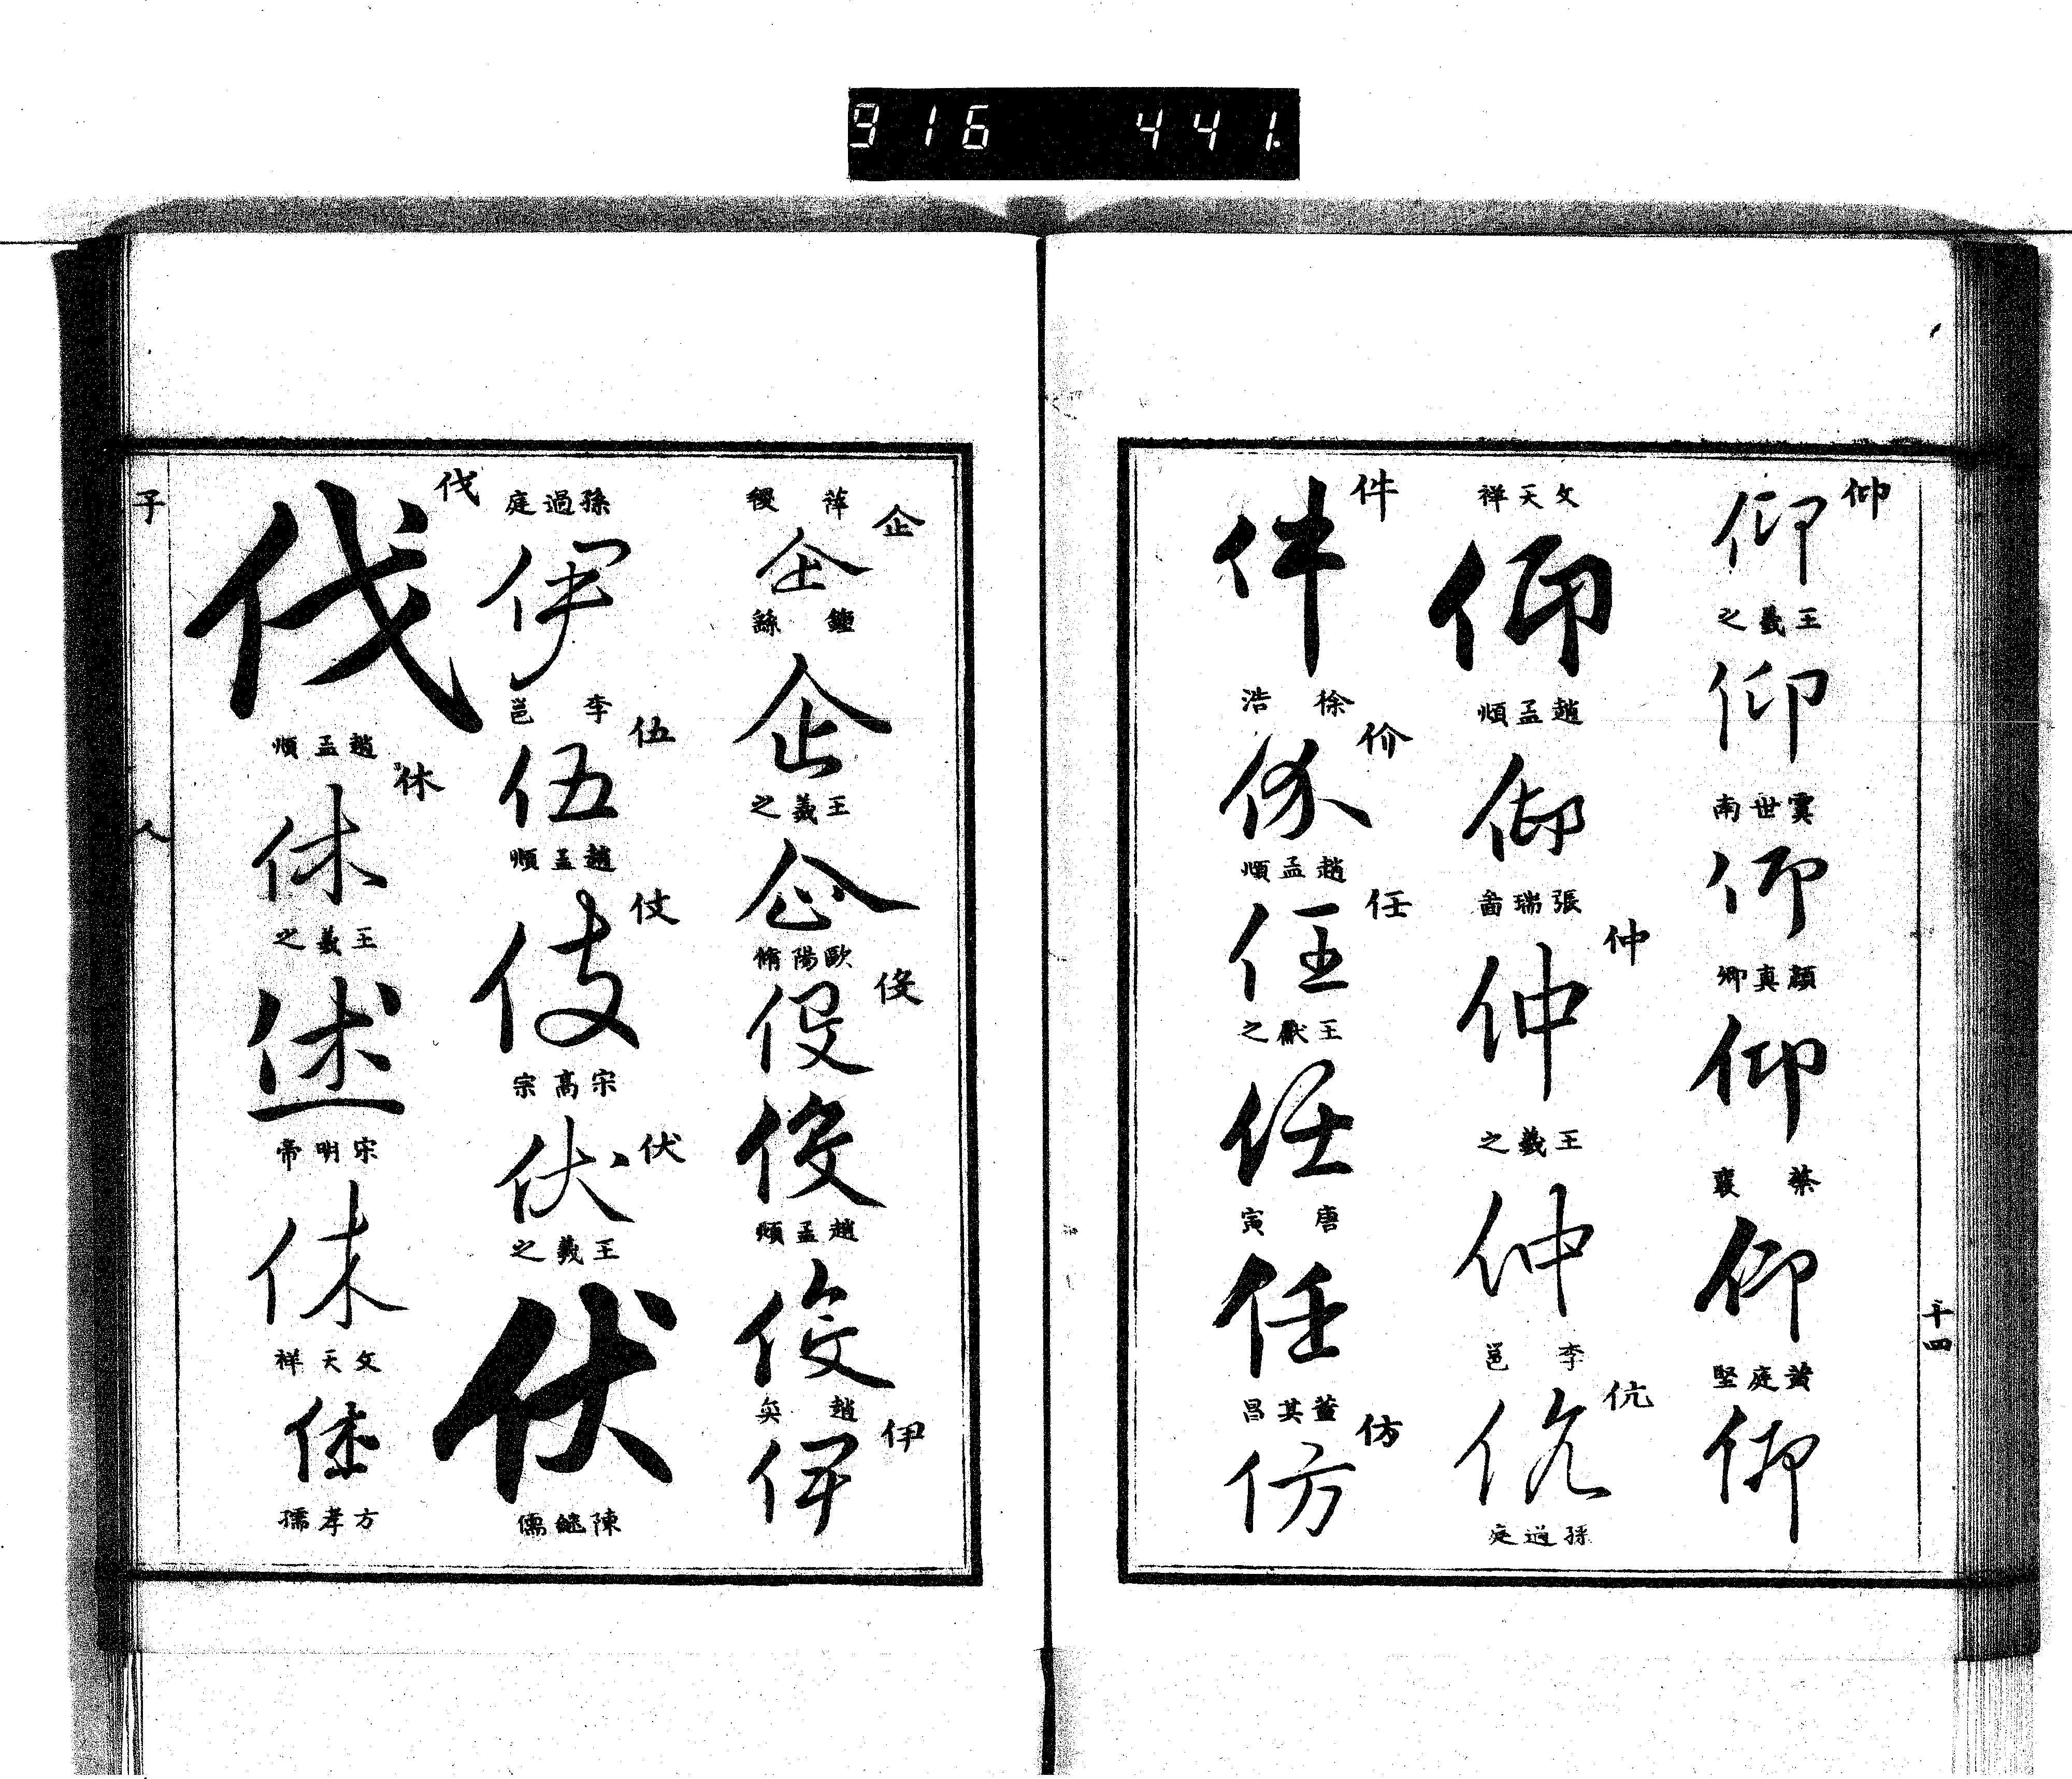 916 441.
仰
仰
王羲之
仰
虞世南
仰
顏真卿
仰
蔡襄
仰
黃庭堅
仰
文天祥
仰
趙孟頫
仰
張瑞啚
仲
仲
王羲之
仲
李邕
伉
伉
孫過庭
件
件
徐浩
价
价
趙孟頫
任
任
王獻之
任
唐寅
任
董其昌
仿
仿
十四
企
薛稷
企
鍾繇
企
王羲之
企
歐陽脩
伇
伇
伇
趙孟頫
伇
趙奐
伊
伊
孫過庭
伊
李邕
伍
伍
趙孟頫
伎
伎
宋高宗
伏
伏
王羲之
伏
陳繼儒
伐
伐
趙孟頫
休
休
王羲之
休
宋明帝
休
文天祥
休
方孝孺
子
人